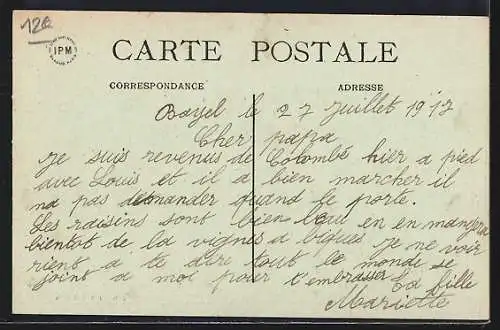 12€
IPM
CARTE POSTALE
CORRESPONDANCE
ADRESSE
Bayel le 27 Juillet 1917
Cher papa
Je suis revenus de Colombé hier a pied
avec Louis et il a bien marcher il
na pas demander quand le porte.
Les raisins sont bien beau en en mangera
bientot de la vignes a bigues je ne voir
rient a te dire tout le monde se
joint a moi pour t'embrasser ta fille
Mariette